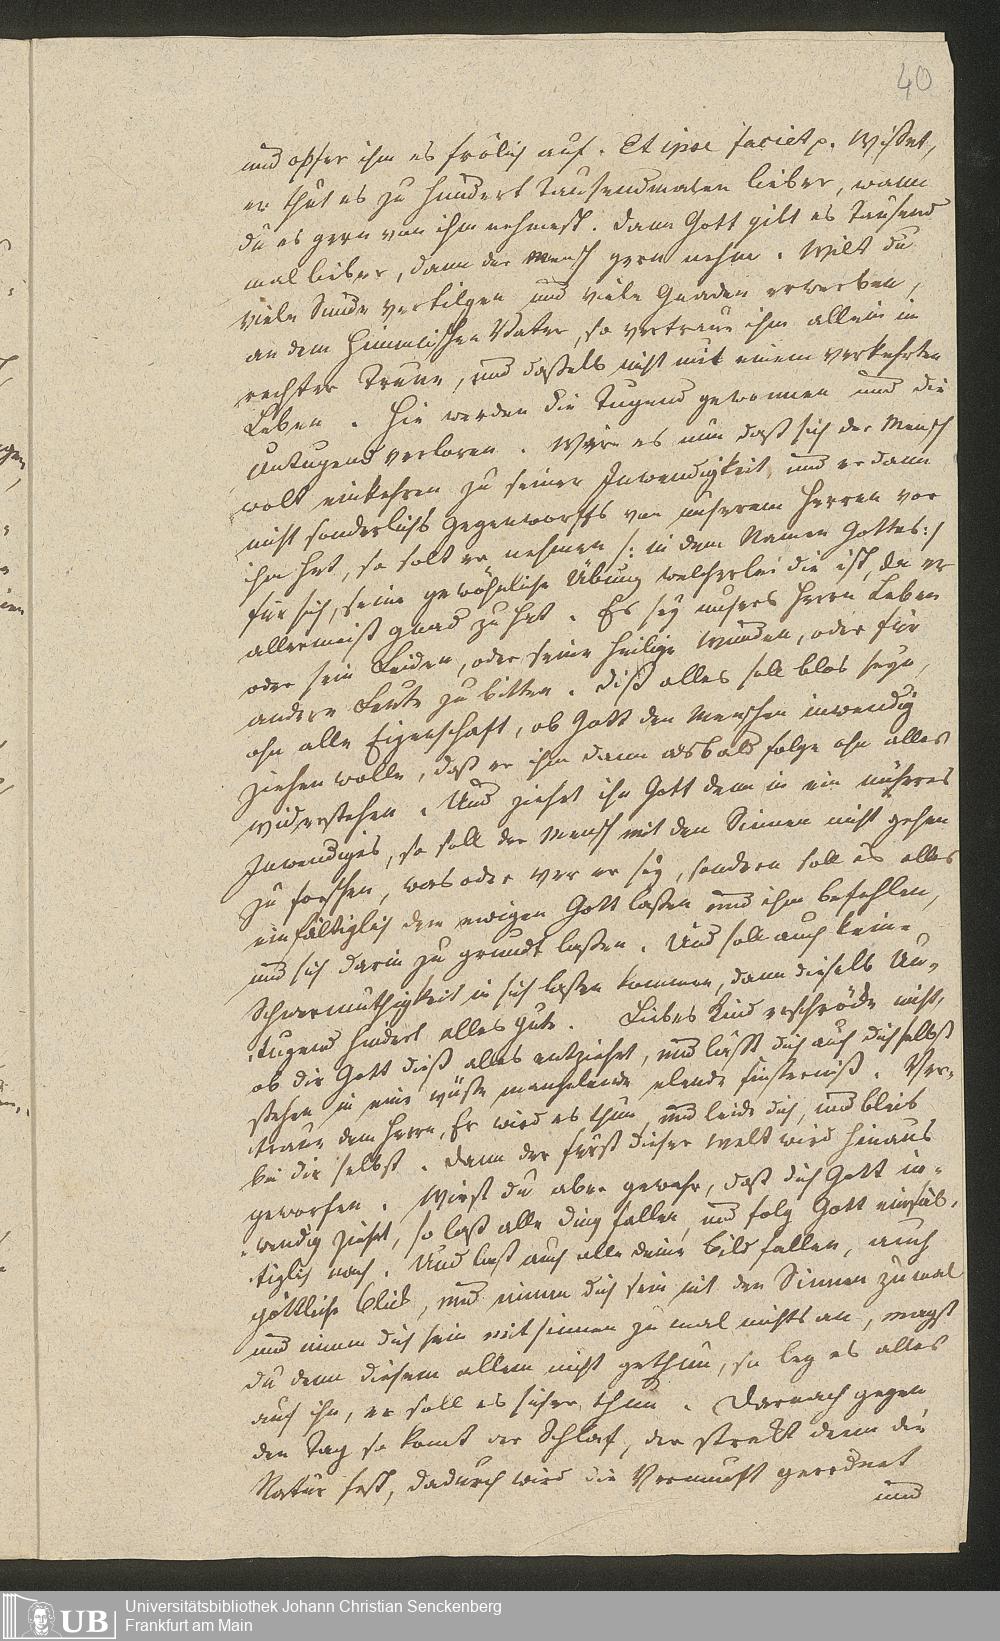 40
und opfer ihm es frölich auf. Et ipse faciet p. Wisset,
er thut es zu hundert Tausendmalen lieber, wann
du es gern von ihm nehmest. dann Gott gibt es Tausend
mal lieber, dann der Mensch gern nehme. Wilt du
viele Sünde vertilgen und viele Gnaden erwerben,
an dem Himmlischen Vater, so vertraue ihm allein in
rechter Treue, und dasselb nicht mit einem verkehrten
Leben. Hie werden die Tugend gewonnen und die
Untugend verloren. Wäre es nun daß sich der Mensch
wolt einkehren zu seiner Inwendigkeit, und er dann
nicht sonderlichs Gegenwurffs von unserem Herren vor
ihm hat, so solt er nehmen /: in dem Namen Gottes :/
für sich, seine gewöhnliche Übung welcherlei die ist, da er
allermeist gnad zu hat. Es sey unsers Herrn Leben
oder sein Leiden, oder seine heilige Wunden, oder für
andere Leute zu bitten. Diß alles soll blos seyn,
ohn alle Eigenschaft, ob Gott den Menschen inwendig
ziehen wolle, daß er ihm dann alsbald folge ohn alles
widerstehen. Und ziehet ihn Gott denn in ein näheres
Inwendiges, so soll der Mensch mit den Sinnen nicht gehen
zu forschen, was oder wer er sey, sondern soll es alles
einfältiglich dem ewigen Gott lassen und ihm befehlen,
und sich darin zu grundt lassen. Und soll auch keine
Schwermuthigkeit in sich lassen kommen, dann dieselb Un-
tugend hindert alles gute. Liebes Kind erschröcke nicht,
ob dir Gott dieß alles entziehet, und läßt dich auf dich selbst
stehen in eine wüste mangelende elende finsterniß. Ver-
traue dem Herrn, Er wird es thun und leide dich, und bleib
bei dir selbst. Dann der fürst dieser Welt wird hinaus
geworfen. Wirst du aber gewahr, daß dich Gott in-
wendig ziehet, so laß alle ding fallen, und folg Gott einfäl-
tiglich nach. Und laß auch alle deine bild fallen, auch
göttliche blick, und nimm dich sein mit den Sinnen zumal
und nimm dich sein mit sinnen zu mal nichts an, magst
du denn diesem allem nicht gethun, so leg es alles
auf ihn, er soll es sicher thun. Darnach gegen
den Tag so komt der Schlaf, der strekt denn die
Natur fest, dadurch wird die Vernunft geordnet
und
UB Universitätsbibliothek Johann Christian Senckenberg
Frankfurt am Main